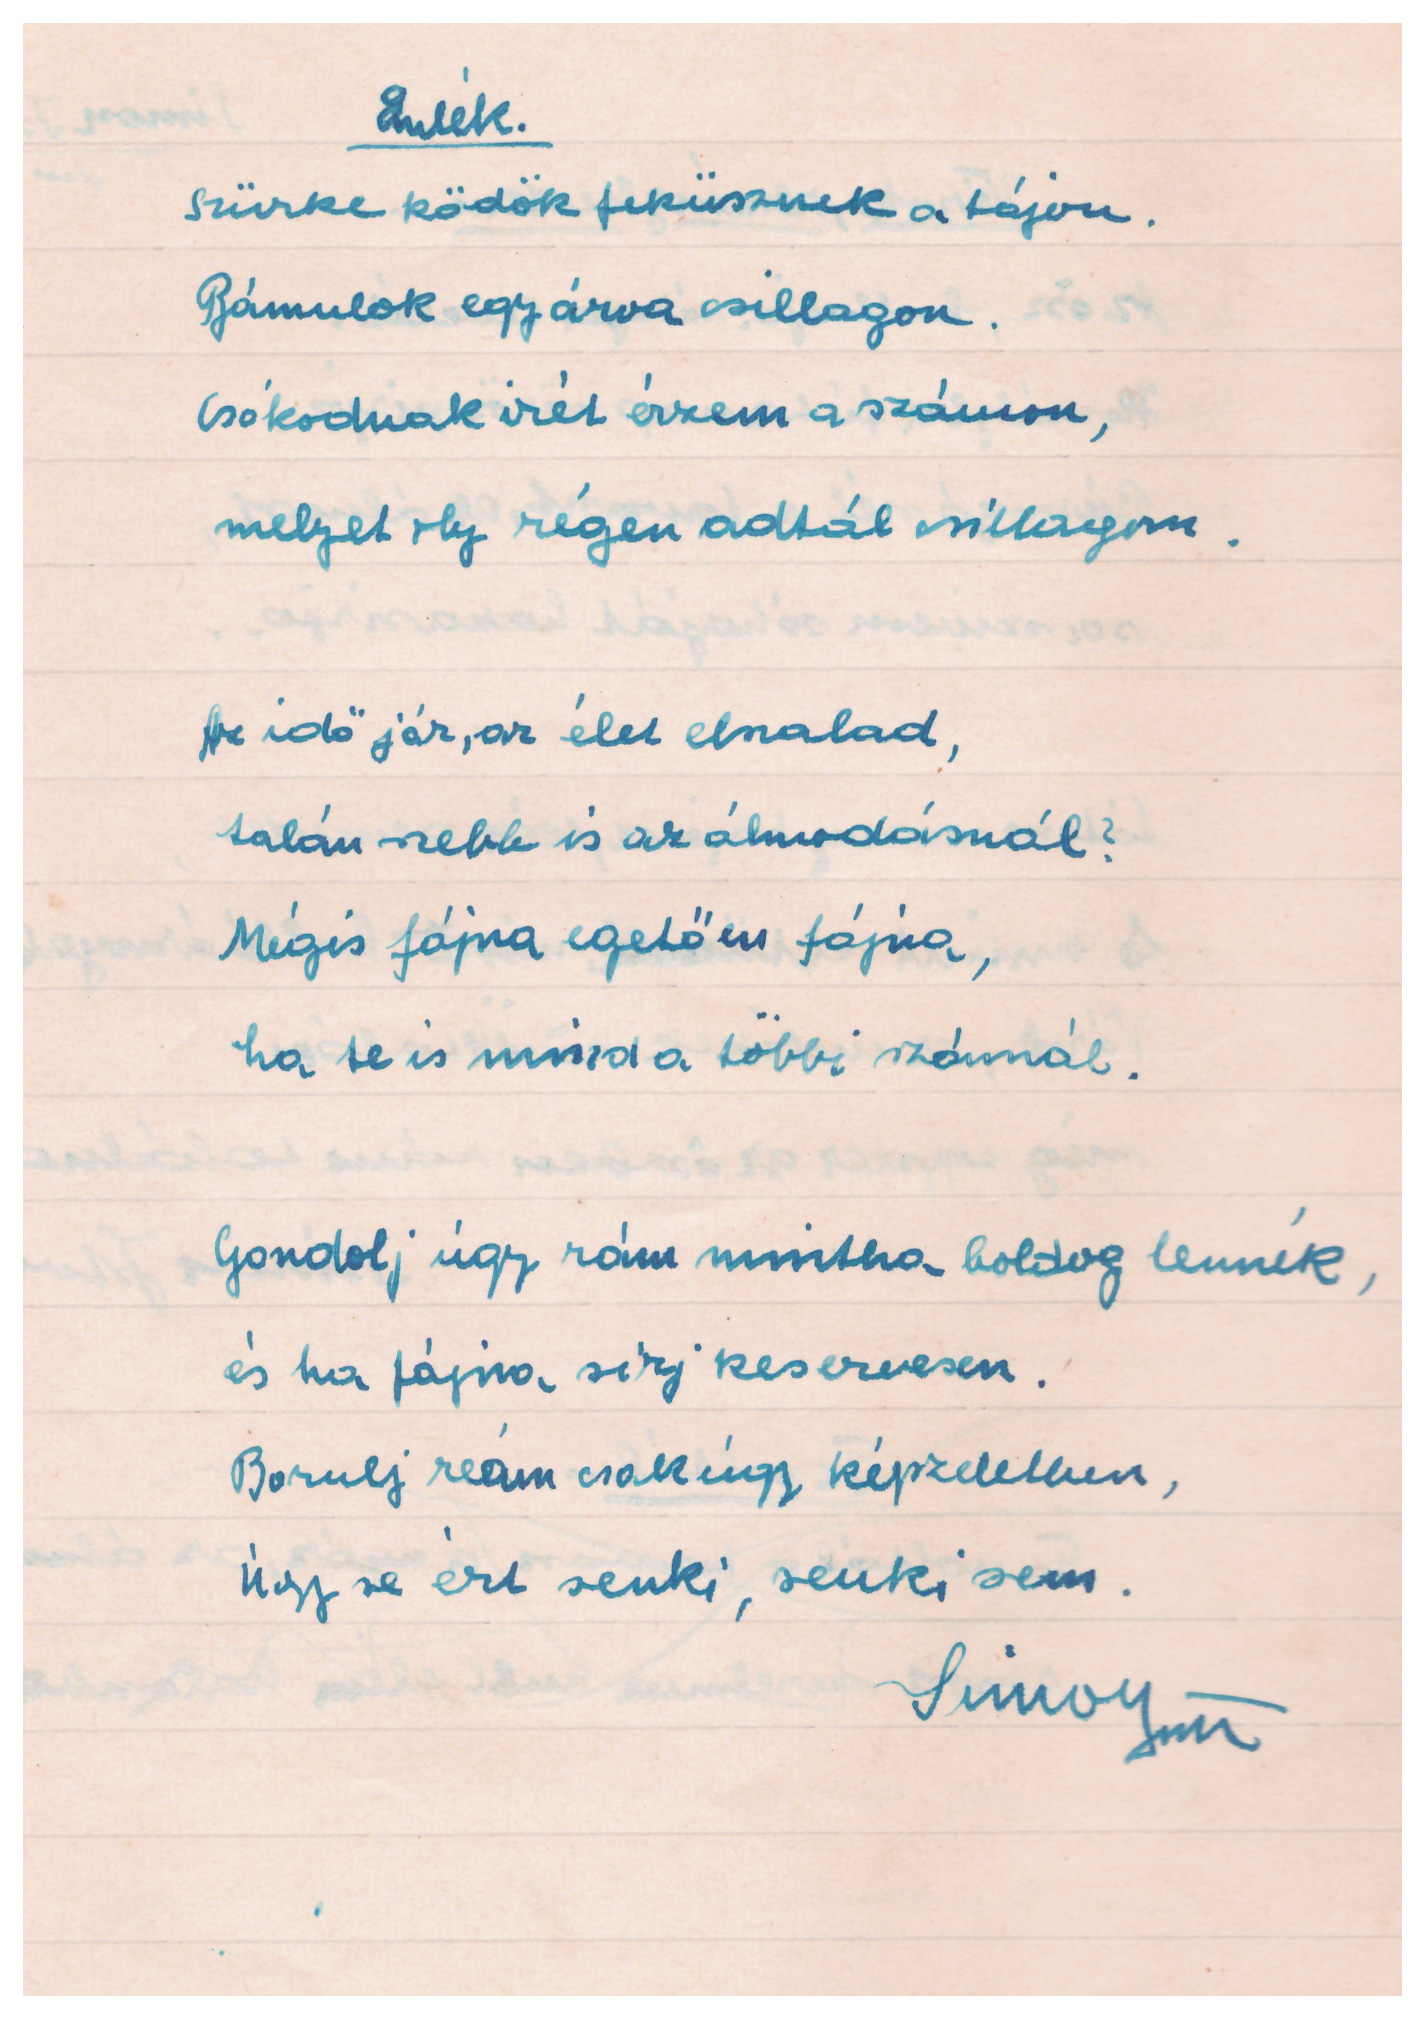 Emlék.
Szürke ködök feküsznek a tájon.
Bámulok egy árva csillagon.
Csókodnak irét érzem a számon,
melyet oly régen adtál csillagom.
Az idő jár, az élet elszalad,
talán szebb is az álmodásnál?
Mégis fájna egetően fájna,
ha te is mind a többi szánnál.
Gondolj úgy rám mintha boldog lennék,
és ha fájna sírj keservesen.
Borulj reám csak úgy képzeletben,
Úgy se ért senki, senki sem.
Simon